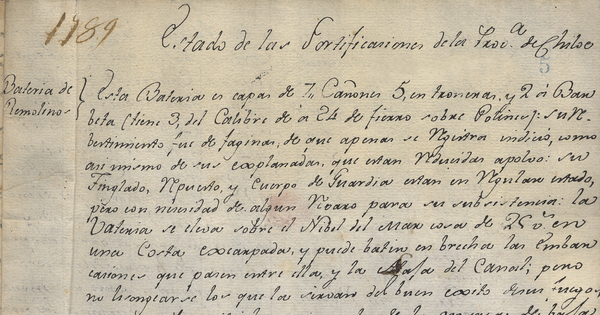 1789
Estado de las Fortificasiones de la Prov.ª de Chiloe
5
Bateria de
Remolinos
Esta Bateria es capas de 7,, Cañones 5, en troneras, y 2 á Bar
beta [tiene 3, del Calibre de á 24 de fierro sobre Polines]: su Re
bestimiento fue de faginas, de que apenas se Registra indicio, como
asi mismo de sus explanadas, que estan Reducidas apolvo: su
Tinglado, Repuesto, y Cuerpo de Guardia estan en Regular estado,
pero con necesidad de algun Reparo para su subsistencia: la
Bateria se eleva sobre el Nibel del Mar cosa de 25 v.s en
una Costa escarpada, y puede batir en brecha las Embar
caciones que pasen entre ella, y la del Canal; pero
no lisongearse los que la sirvan del buen exito de sus fuegos,